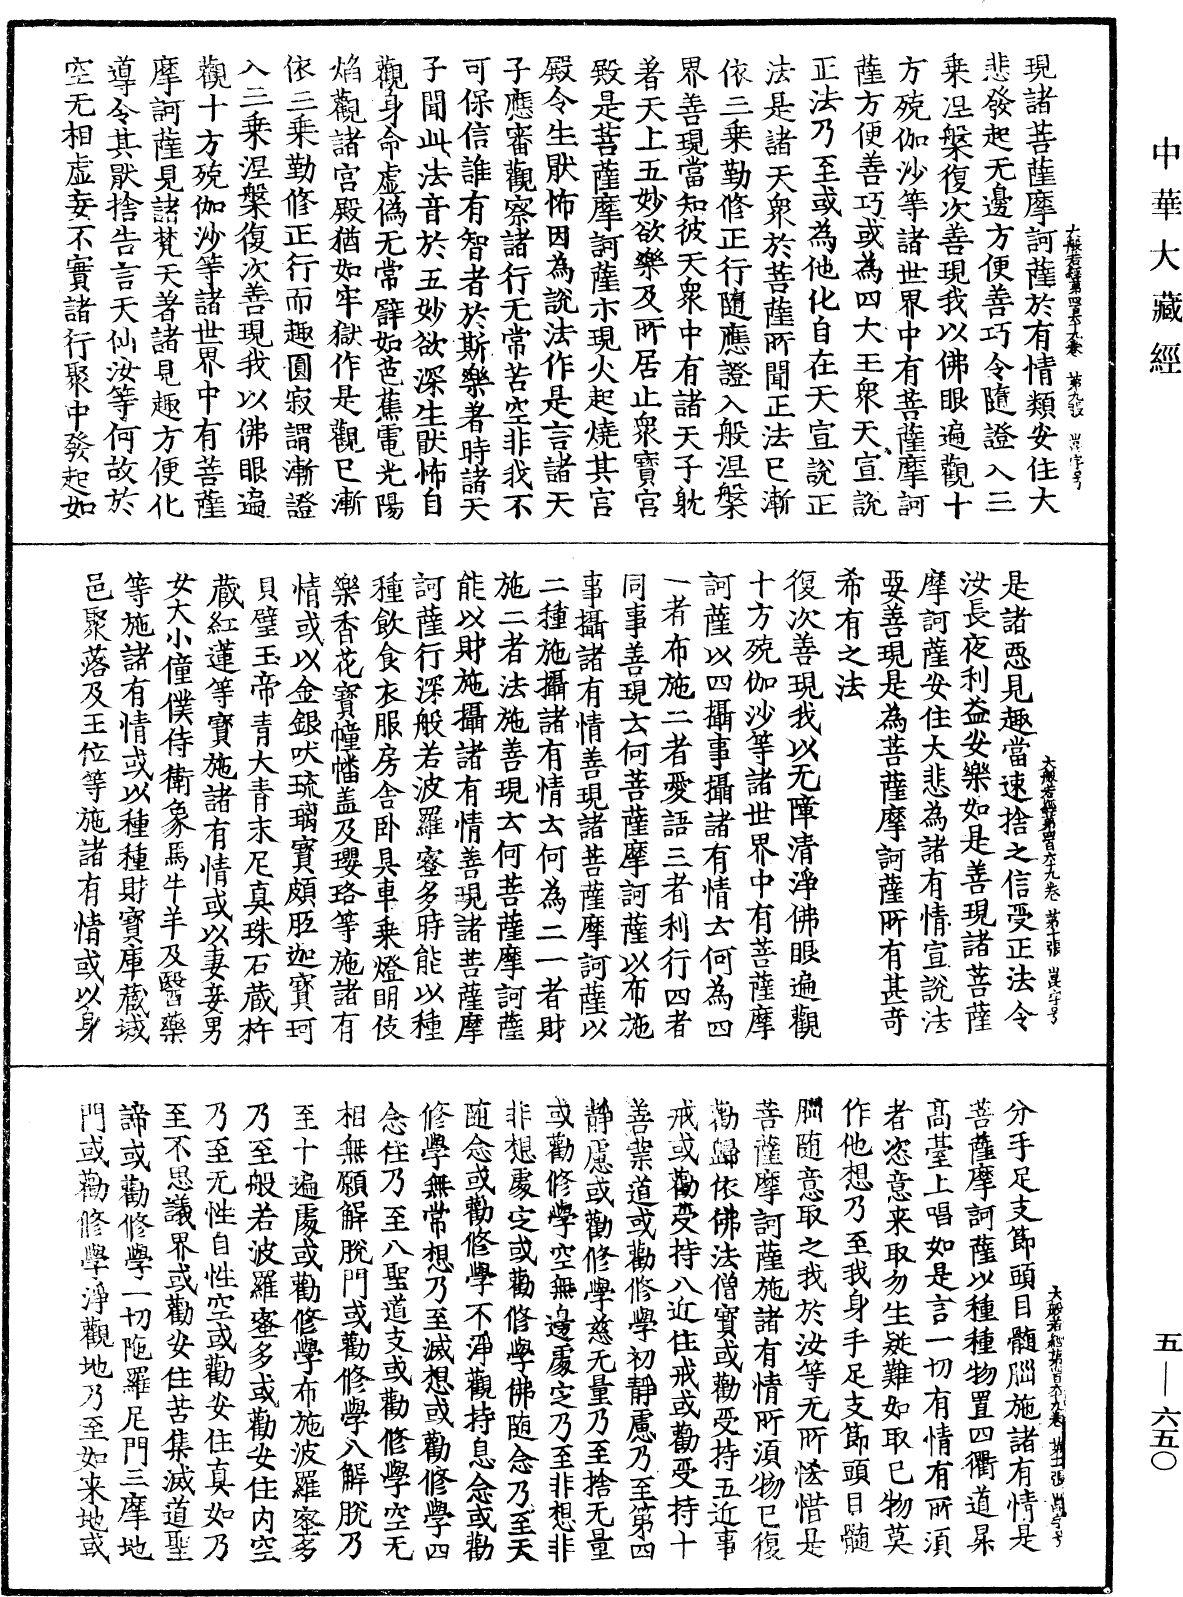 中華大藏經
現諸菩薩摩訶薩於有情類安住大
悲發起无邊方便善巧令隨證入三
乗涅槃復次善現我以佛眼遍觀十
方殑伽沙等諸世界中有菩薩摩訶
薩方便善巧或為四大王衆天宣說
正法乃至或為他化自在天宣說正
法是諸天衆於菩薩所聞正法已漸
依三乗勤修正行隨應證入般涅槃
界善現當知彼天衆中有諸天子躭
著天上五妙欲樂及所居止衆寶宮
殿是菩薩摩訶薩示現火起燒其宮
殿令生猒怖因為說法作是言諸天
子應審觀察諸行无常苦空非我不
可保信誰有智者於斯樂著時諸天
子聞此法音於五妙欲深生猒怖自
觀身命虛僞无常譬如芭蕉電光陽
焰觀諸宮殿猶如牢獄作是觀已漸
依三乗勤修正行而趣圓寂謂漸證
入三乗涅槃復次善現我以佛眼遍
觀十方殑伽沙等諸世界中有菩薩
摩訶薩見諸梵天著諸見趣方便化
導令其猒捨告言天仙汝等何故於
空无相虛妄不實諸行聚中發起如
大般若經第四百六十九卷 第九張 崑字号
是諸惡見趣當速捨之信受正法令
汝長夜利益安樂如是善現諸菩薩
摩訶薩安住大悲為諸有情宣說法
要善現是為菩薩摩訶薩所有甚奇
希有之法
復次善現我以无障清淨佛眼遍觀
十方殑伽沙等諸世界中有菩薩摩
訶薩以四攝事攝諸有情云何為四
一者布施二者愛語三者利行四者
同事善現云何菩薩摩訶薩以布施
事攝諸有情善現諸菩薩摩訶薩以
二種施攝諸有情云何為二一者財
施二者法施善現云何菩薩摩訶薩
能以財施攝諸有情善現諸菩薩摩
訶薩行深般若波羅蜜多時能以種
種飲食衣服房舍卧具車乗燈明伎
樂香花寶幢幡盖及瓔珞等施諸有
情或以金銀吠琉璃寶頗胝迦寶珂
貝璧玉帝青大青末尼真珠石藏杵
藏紅蓮等寶施諸有情或以妻妾男
女大小僮僕侍衛象馬牛羊及醫藥
等施諸有情或以種種財寶庫藏城
邑聚落及王位等施諸有情或以身
大般若經第四百六十九卷 第十張 崑字号
分手足支節頭目髓腦施諸有情是
菩薩摩訶薩以種種物置四衢道昇
高臺上唱如是言一切有情有所須
者恣意来取勿生疑難如取已物莫
作他想乃至我身手足支節頭目髓
腦随意取之我於汝等无所恡惜是
菩薩摩訶薩施諸有情所須物已復
勸歸依佛法僧寶或勸受持五近事
戒或勸受持八近住戒或勸受持十
善業道或勸修學初靜慮乃至第四
靜慮或勸修學慈无量乃至捨无量
或勸修學空無邊處定乃至非想非
非想處定或勸修學佛随念乃至天
随念或勸修學不淨觀持息念或勸
修學無常想乃至滅想或勸修學四
念住乃至八聖道支或勸修學空无
相無願解脫門或勸修學八解脫乃
至十遍處或勸修學布施波羅蜜多
乃至般若波羅蜜多或勸安住内空
乃至无性自性空或勸安住真如乃
至不思議界或勸安住苦集滅道聖
諦或勸修學一切陁羅尼門三摩地
門或勸修學淨觀地乃至如来地或
大般若經第四百六十九卷 第十一張 崑字号
五—六五〇